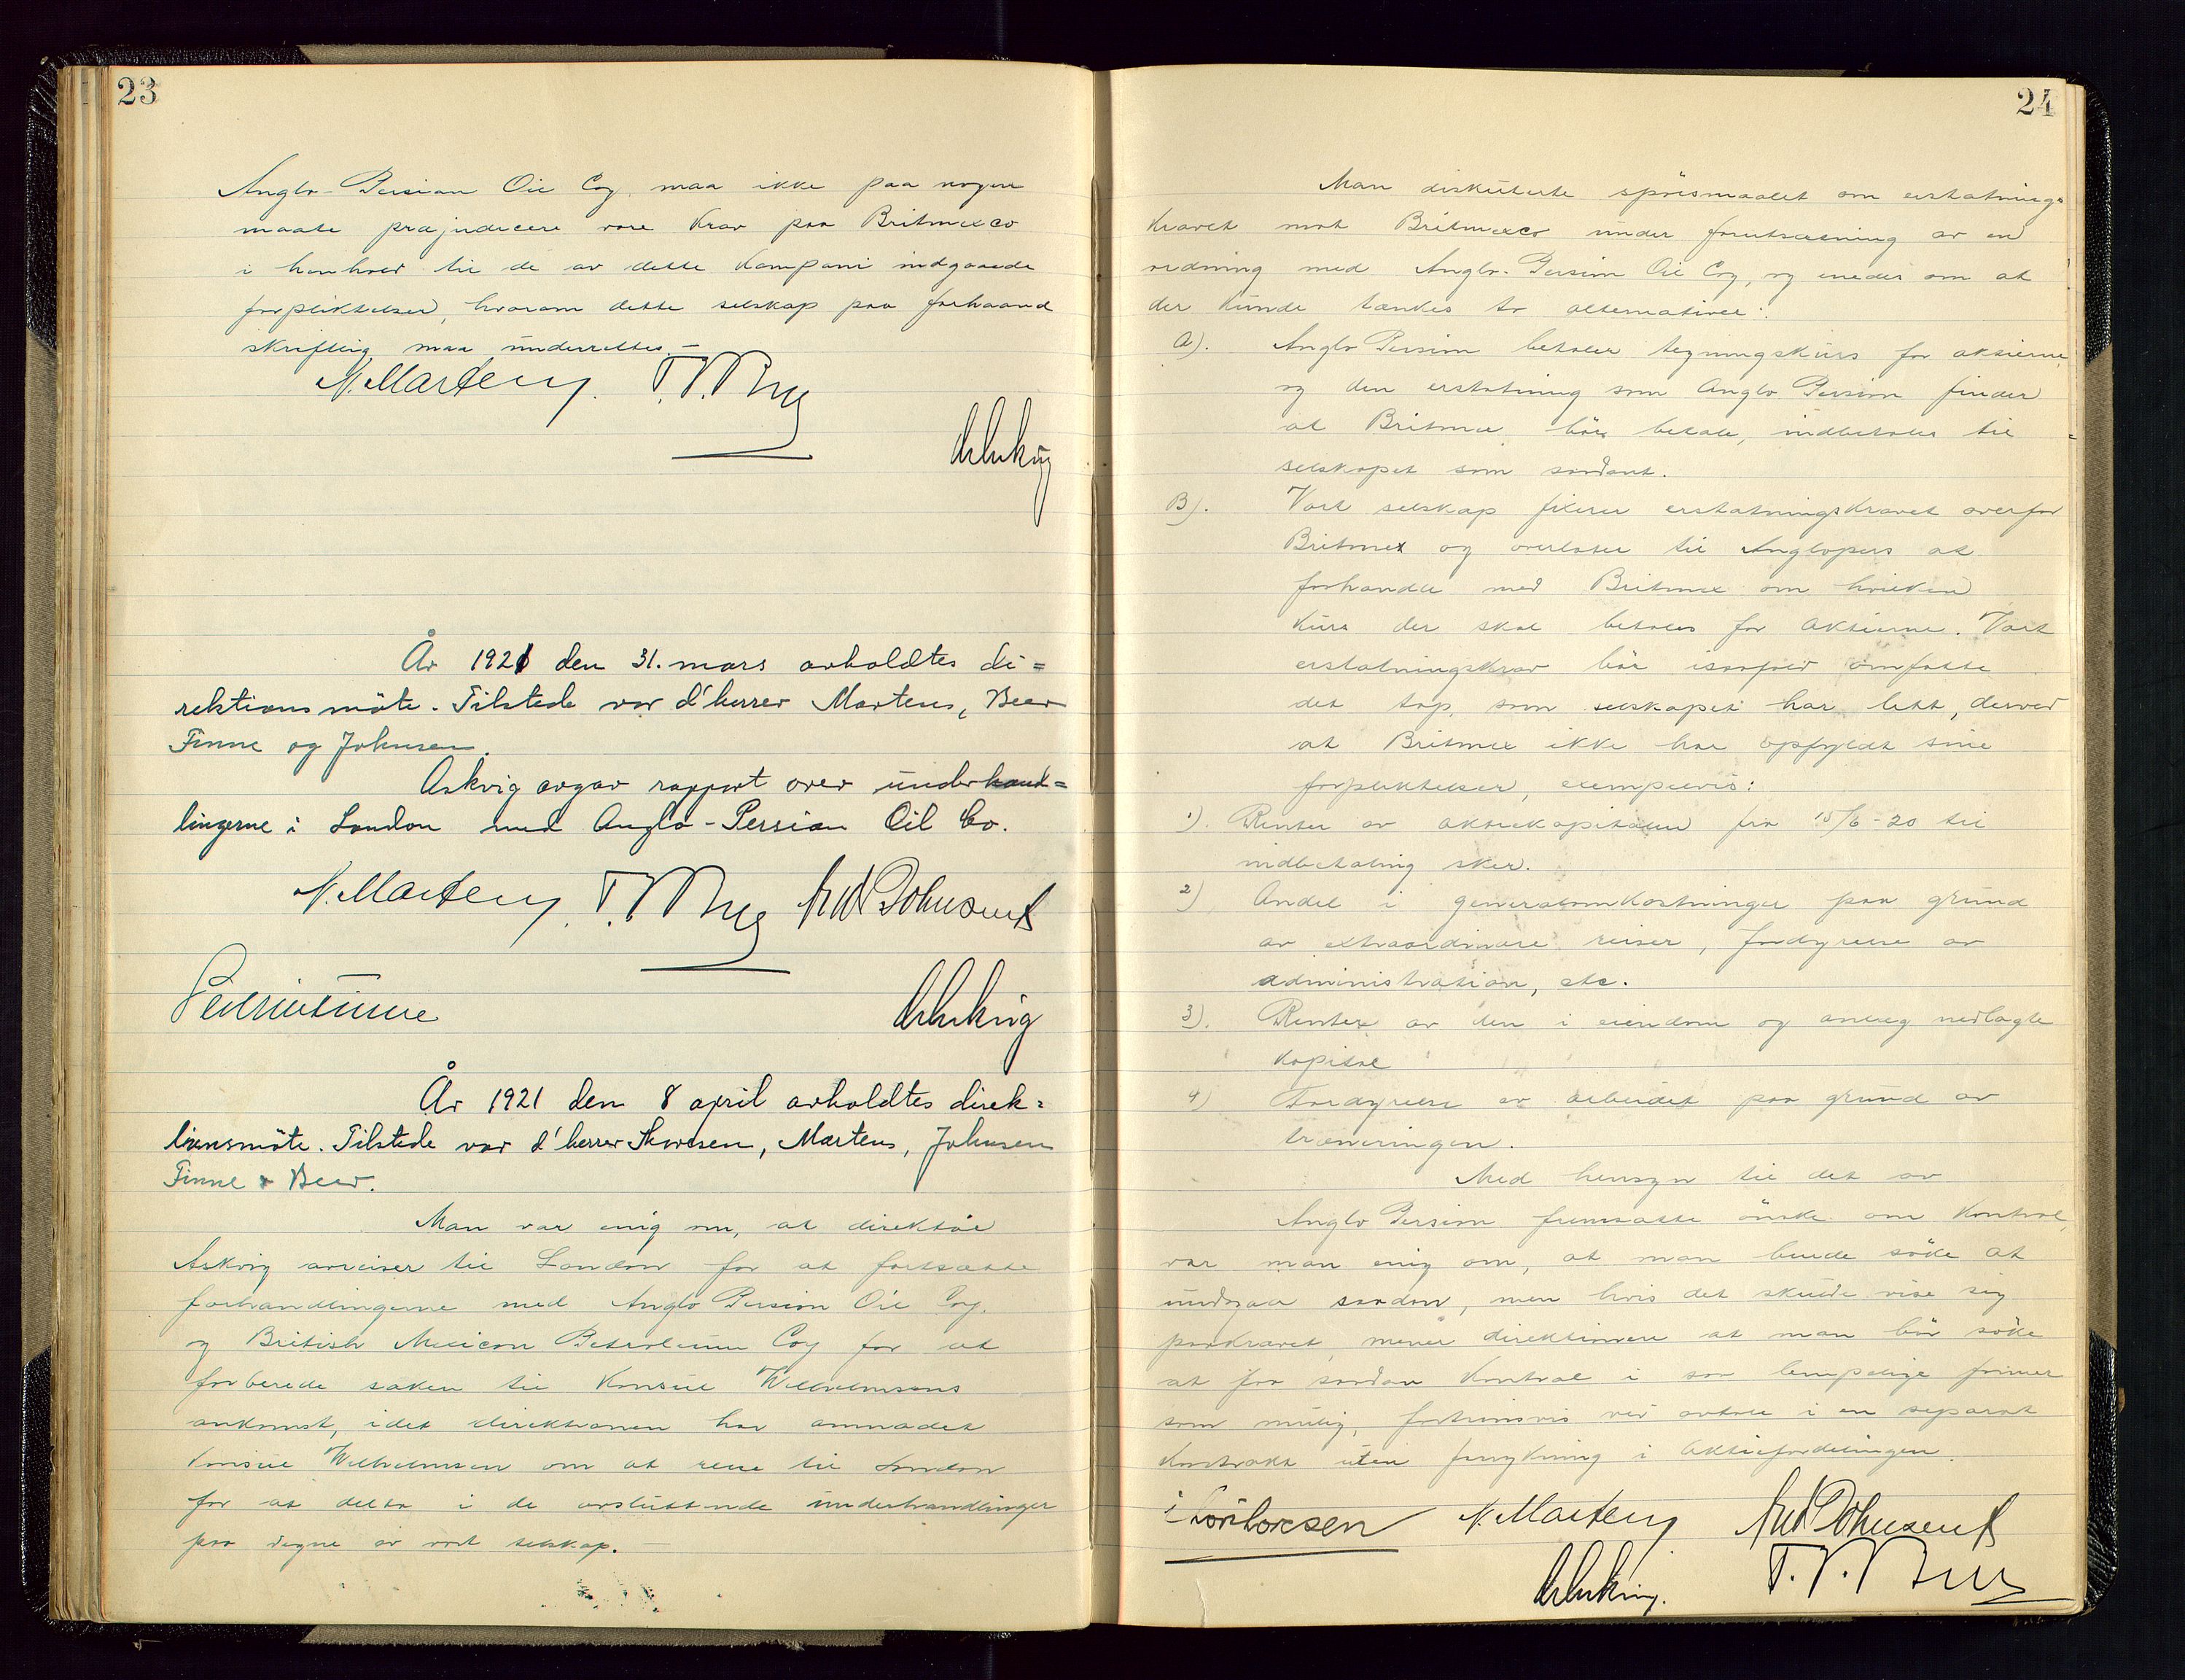 23
Anglo-Persian Oil Coy. maa ikke paa nogen
maate præjudicere vore krav paa Britmexco
i henhold til de av dette kompani indgaaede
forpliktelser, hvorom dette selskap paa forhaand
skriftlig maa underrettes.—
N. Martens. T. T. Beer
År 1921 den 31. mars avholdtes di=
rektionsmöte. Tilstede var d'herrer Martens, Beer
Finne og Johnsen.
Askvig avgav rapport over underhand=
lingerne i London med Anglo-Persian Oil Co.
N. Martens. T. T. Beer Johnsen
År 1921 den 8 april avholdtes direk=
tionsmöte. Tilstede var d'herrer Thoresen, Martens, Johnsen
Finne & Beer.
Man var enig om, at direktör
Askvig avreiser til London for at fortsætte
forhandlingerne med Anglo Persian Oil Coy.
og British Mexican Petroleum Coy for at
forberede saken til Konsul Wilhelmsens
ankomst, idet direktionen har anmodet
konsul Wilhelmsen om at reise til London
for at delta i de avsluttende underhandlinger
paa vegne av vort selskap.—
24
Man diskuterte spörsmaalet om erstatnings-
kravet mot Britmexco under forutsætning av en
ordning med Anglo-Persian Oil Coy, og enedes om at
der kunde tænkes to alternativer:
A). Anglo Persian betaler tegningskurs for aktierne
og den erstatning som Anglo Persian finder
at Britmex bör betale, indbetales til
selskapet som saadant.
B). Vort selskap fikserer erstatningskravet overfor
Britmex og overlater til Anglopers at
forhandle med Britmex om hvilken
kurs der skal betales for aktierne. Vort
erstatningskrav bör isaafald omfatte
det tap, som selskapet har lidt, derved
at Britmex ikke har opfyldt sine
forpliktelser, exempelvis:
1). Renter av aktiekapitalen fra 15/6-20 til
indbetaling sker.
2) Andel i generalomkostninger paa grund
av extraordinære reiser, fordyrelse av
administration, etc.
3). Renter av den i eiendom og anlæg nedlagte
kapital
4) Fordyrelse av arbeidet paa grund av
træneringen.
Med hensyn til det av
Anglo Persian fremsatte önske om kontrol,
var man enig om, at man burde söke at
undgaa saadan, men hvis det skulde vise sig
paakrævet, mener direktionen at man bör söke
at faa saadan kontrol i saa lempelige former
som mulig, fortrinsvis ved avtale i en separat
kontrakt uten forrykning i aktiefordelingen.
Thoresen N. Martens Johnsen
T. T. Beer